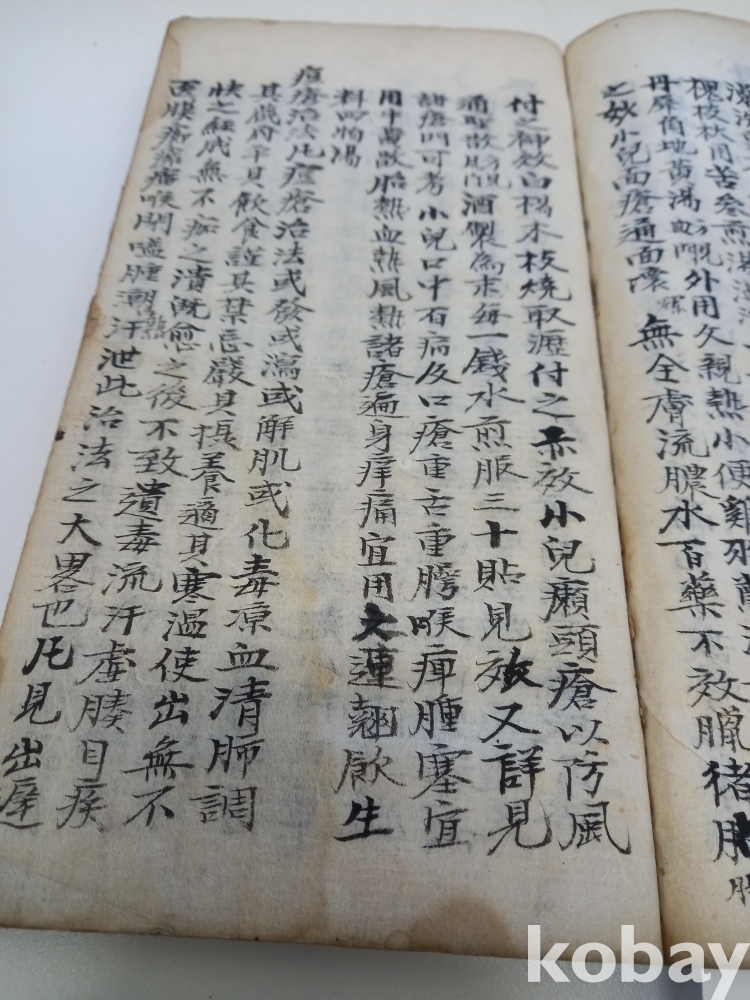 槐枝 用苦參煎湯
丹犀角地黄湯 外用久親熱小便雞
之妙小兒面瘡通面 無全膚流膿水百藥不效臘猪
付之神效白楊木枝燒取瀝付之亦效小兒癩頭瘡以防風
通聖散 酒製為末每一錢水煎服三十貼見效又詳見
諸瘡門可考小兒口中百病及口瘡重舌重腭喉痺腫塞宜
用牛黄散胎熱血熱風熱諸瘡遍身痒痛宜用大連翹飲生
料四物湯
痘瘡治法凡痘瘡治法或發或瀉或解肌或化毒凉血清肺調
其臟府平其飲食謹其禁忌嚴其 養適其寒温使出無不
快之 成無不痂之潰既愈之後不致遺毒流汗虚腠目疾
瘡 喉閉嗌腫潮熱汗泄此治法之大畧也凡見出遲
kobay